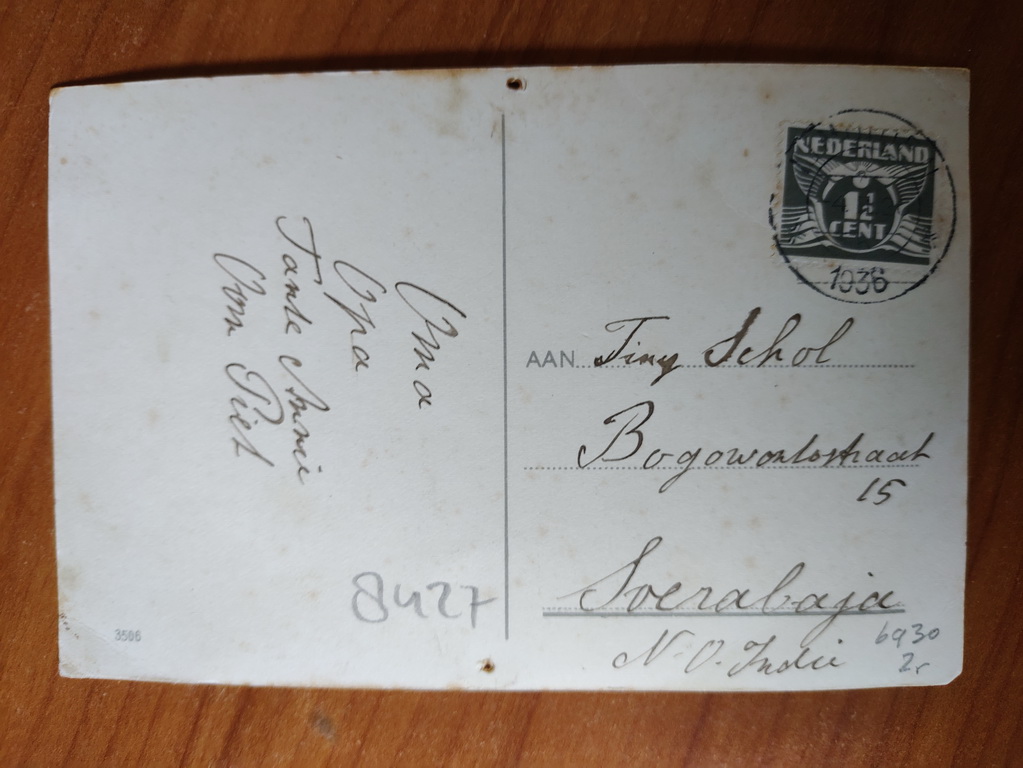 Oma
Opa
Tante Annie
Oom Piet
8427
3566
NEDERLAND
1½
CENT
1936
AAN Tiny Schol
Bogowontostraat
15
Soerabaja
N. O. Indie
6930
2r